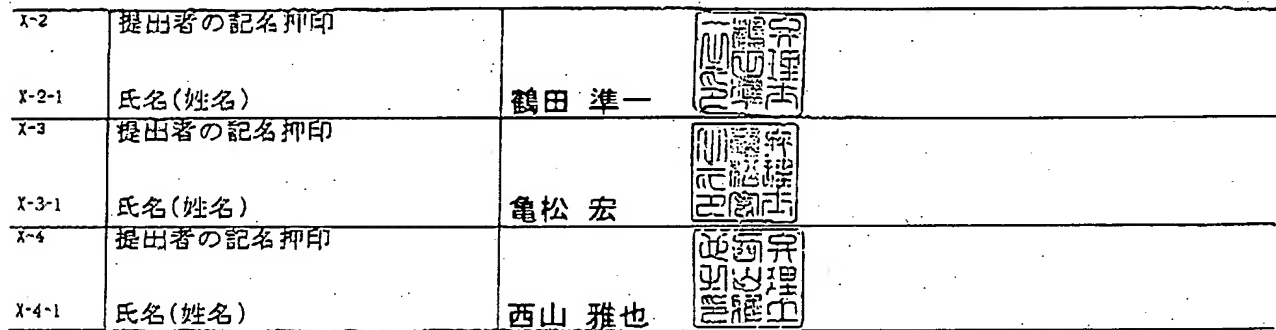 X-2 提出者の記名押印
X-2-1 氏名(姓名) 鶴田 準一
X-3 提出者の記名押印
X-3-1 氏名(姓名) 亀松 宏
X-4 提出者の記名押印
X-4-1 氏名(姓名) 西山 雅也